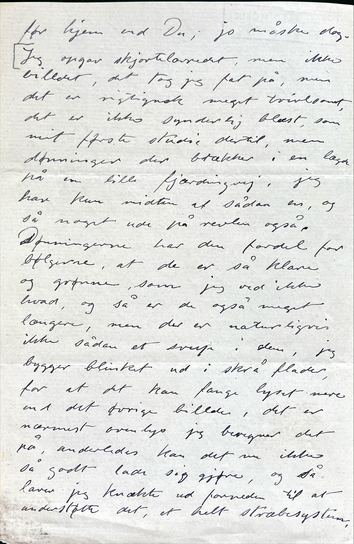 før hjem end Du; jo måske dog.
Jeg opgav skjortelærredet, men ikke
billedet, det tog jeg fat på, men
det er rigtignok meget tvivlsomt,
det er ikke synderlig blæst, som
mit første studie dertil, men
dønninger der brækker i en lagde
på en lille fjerdingvej, jeg
har kun midten af sådan en, og
så noget ude på revlen også.
Dønningerne har den fordel for
bølgerne, at de er så klare
og grønne, som jeg ved ikke
hvad, og så er de også meget
længere, men der er naturligvis
ikke sådan et svup i dem, jeg
bygger blinket ud i skrå flader,
for at det kan fange lyset mere
end det øvrige billede, det er
nærmest ovenlys jeg beregner det
på, anderledes kan det nu ikke
så godt lade sig gøre, og så
laver jeg knækte ud forneden til at
understøtte det, et helt stræbesystem,